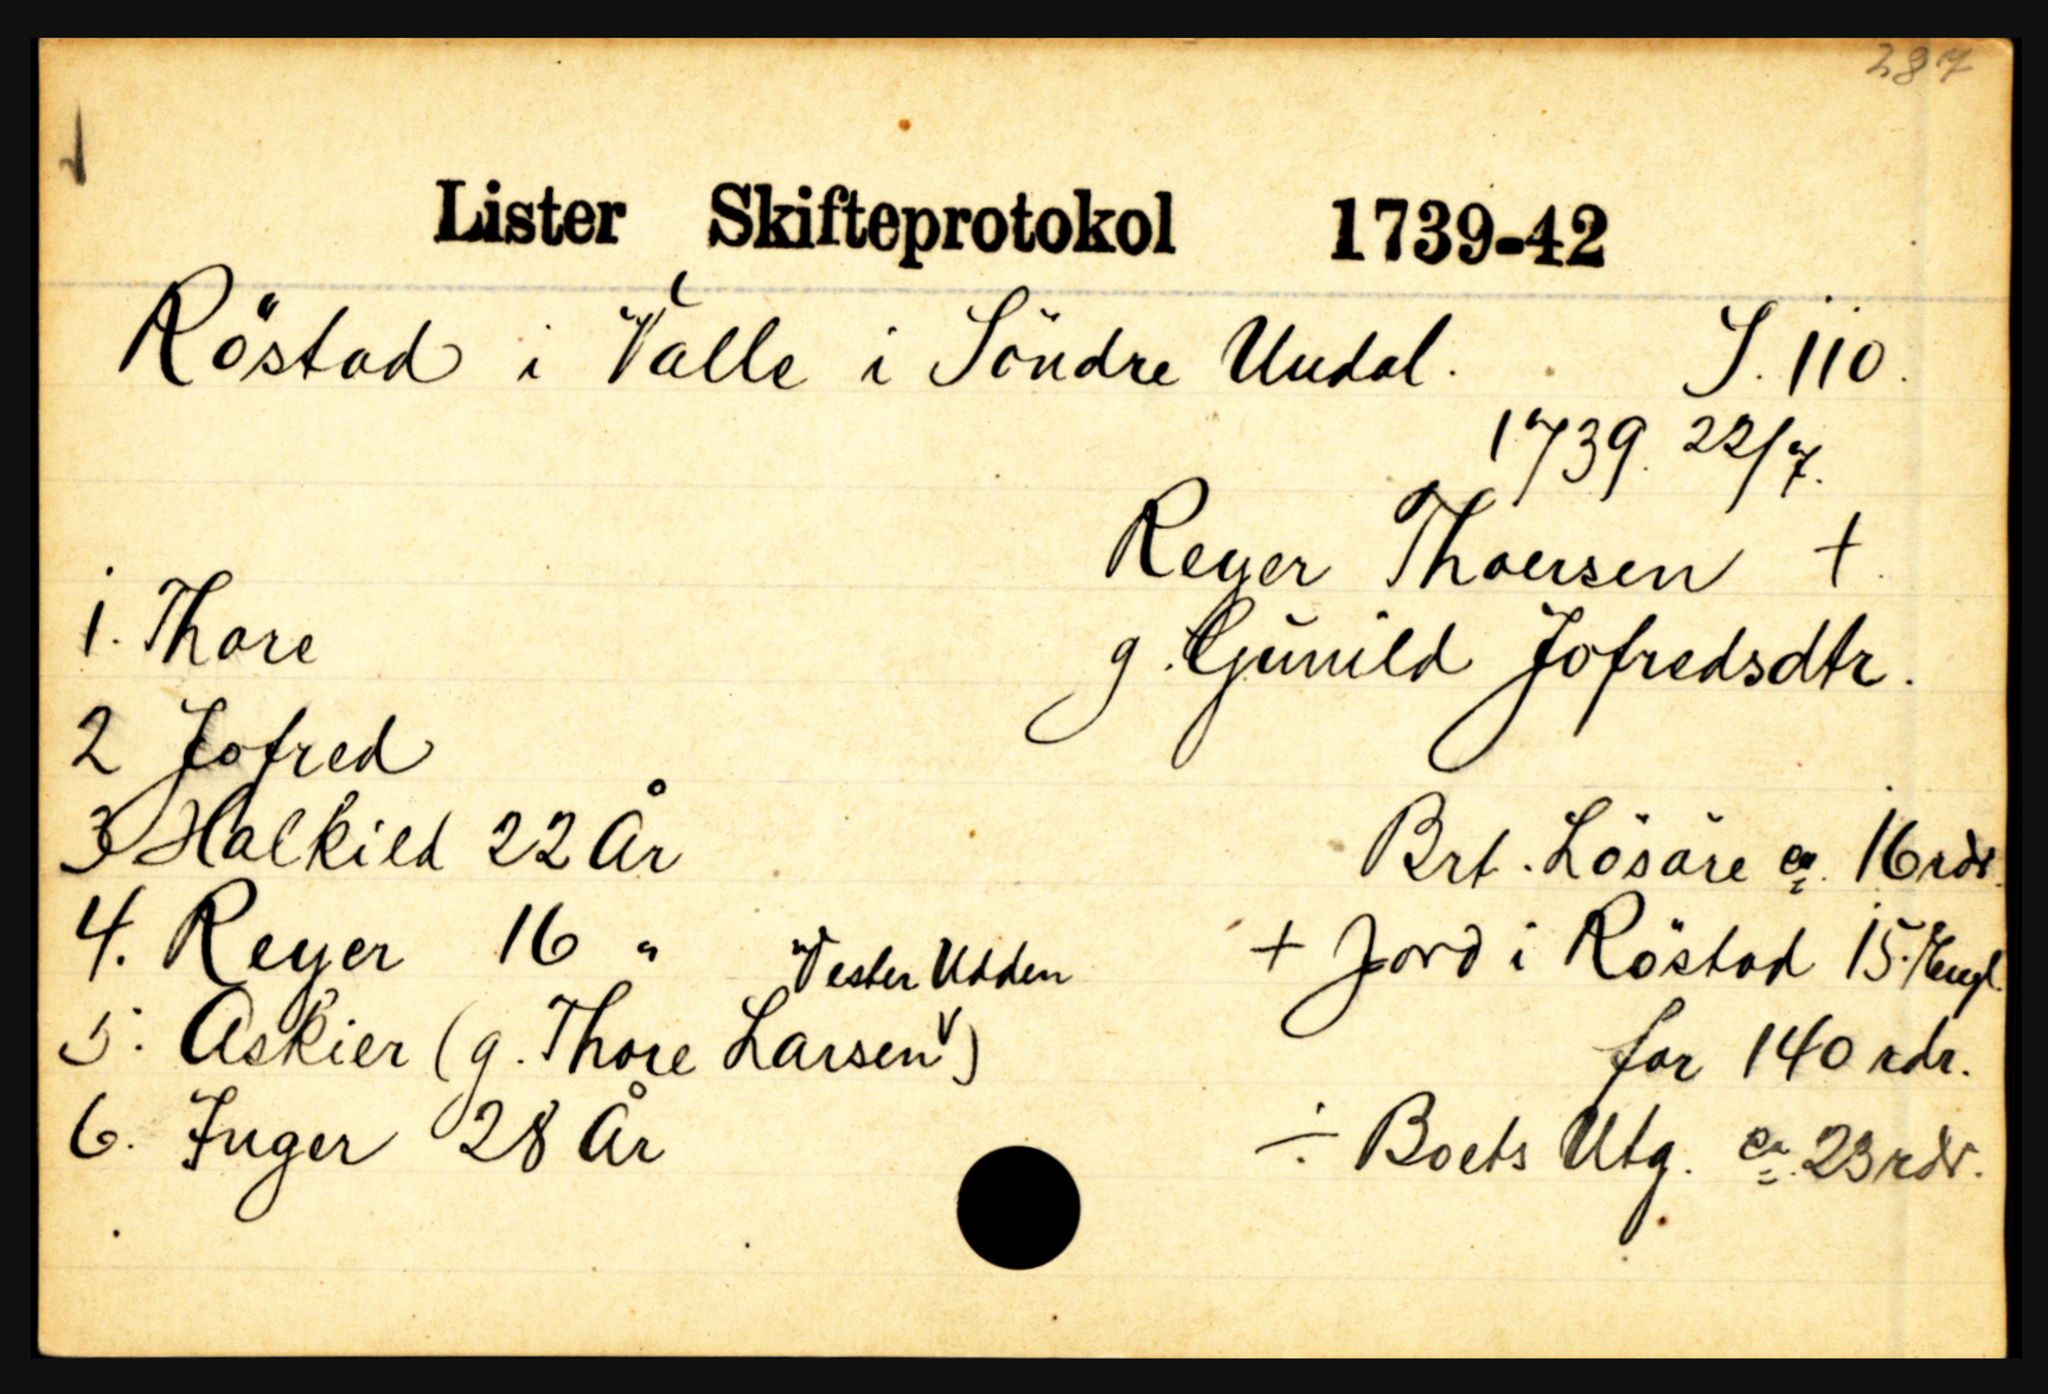 287
Lister Skifteprotokol 1739-42
Röstad i Valle i Söndre Undal. S. 110.
1739. 22/7.
Reyer Thoersen +
1. Thore
g. Gunild Jofredsdtr.
2 Jofred
3 Halkild 22 År
Brt. Lösöre ca. 16 rdr.
4. Reyer 16 "
+ Jord i Röstad 15. Engl.
Vester Udden
5. Askier (g. Thore Larsen)
for 140 rdr.
6. Inger 28 År
÷ Boets Utg. ca. 23 rdr.